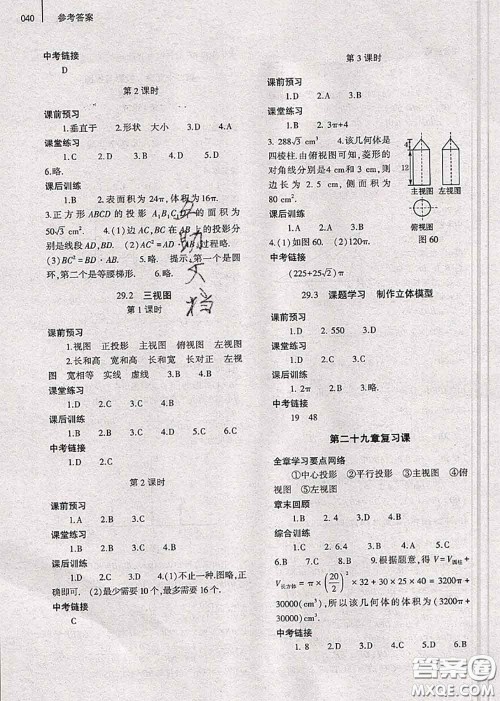 040 参考答案
中考链接
D
第2课时
课前预习
1.垂直于 2.形状 大小 3.D 4.A
课堂练习
1.C 2.D 3.D 4.B 5.B
6.略.
课后训练
1.B 2.表面积为24π,体积为16π.
3.正方形ABCD的投影A₁B₁C₁D₁的面积为
50√3 cm². 4.(1)边AB,AC在BC上的投影分
别是线段AD,BD. (2)AC²=AD·AB.
(3)BC²=BD·AB. 5.略. 提示,第一个是圆
环,第二个是等腰梯形. 6.略.
29.2 三视图
第1课时
课前预习
1.视图 正投影 主视图 俯视图 左视图
2.长和高 宽和高 长和宽 长对正 左视
图 宽相等 实线 虚线 3.B 4.B
课堂练习
1.D 2.C 3.A 4.C
课后训练
1.C 2.B 3.D 4.C 5.B
中考链接
1.D 2.C
第2课时
课前预习
1.A 2.B 3.C
课堂练习
1.B 2.B 3.C
课后训练
1.D 2.A 3.C 4.(1)不止一种.图略,正
确即可. (2)最少需要10个,最多需要16个.
中考链接
C
第3课时
课前预习
1.D 2.A 3.B
课堂练习
1.B 2.B 3.2π+4
课后训练
1.C 2.B
3. 288√3 cm³ 4.该几何体是
四棱柱.由俯视图可知,菱形的
对角线分别是4 cm和3 cm,则
边长为2.5 cm,侧面积为
80 cm².
4
12
主视图 左视图
俯视图
图60
5.(1)如图60. (2)120π.
中考链接
(225+25√2)π
29.3 课题学习 制作立体模型
课前预习
1.D 2.550 3.D
课堂练习
1.C 2.C 3.A 4.B
课后训练
1.2π 2.B 3.略.
中考链接
19 48
第二十九章复习课
全章学习要点网络
①中心投影 ②平行投影 ③主视图 ④俯
视图 ⑤左视图
章末回顾
1.B 2.D 3.A
综合训练
1.C 2.A 3.D 4.D 5.C
6.B 7.B 8.9 9.根据题意,得V=V圆柱+
V长方体=π×(20/2)²×32+30×25×40=3200π+
30000(cm³),所以该几何体的体积为(3200π+
30000)cm³.
中考链接
1.8 2.D 3.D 4.A 5.D 6.B
互助文档
答案圈
MXQE.COM